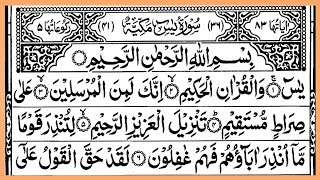 اٰيَاتُهَا ٨٣ (٣٦) سُوْرَةُ يٰسٓ مَكِّيَّةٌ (٤١) رُكُوْعَاتُهَا ٥
بِسْمِ اللّٰهِ الرَّحْمٰنِ الرَّحِيْمِ
يٰسٓ ۚ﴿۱﴾ وَالْقُرْاٰنِ الْحَكِيْمِ ۙ﴿۲﴾ اِنَّكَ لَمِنَ الْمُرْسَلِيْنَ ۙ﴿۳﴾ عَلٰى
صِرَاطٍ مُّسْتَقِيْمٍ ؕ﴿۴﴾ تَنْزِيْلَ الْعَزِيْزِ الرَّحِيْمِ ۙ﴿۵﴾ لِتُنْذِرَ قَوْمًا
مَّاۤ اُنْذِرَ اٰبَآؤُهُمْ فَهُمْ غٰفِلُوْنَ ﴿۶﴾ لَقَدْ حَقَّ الْقَوْلُ عَلٰۤى